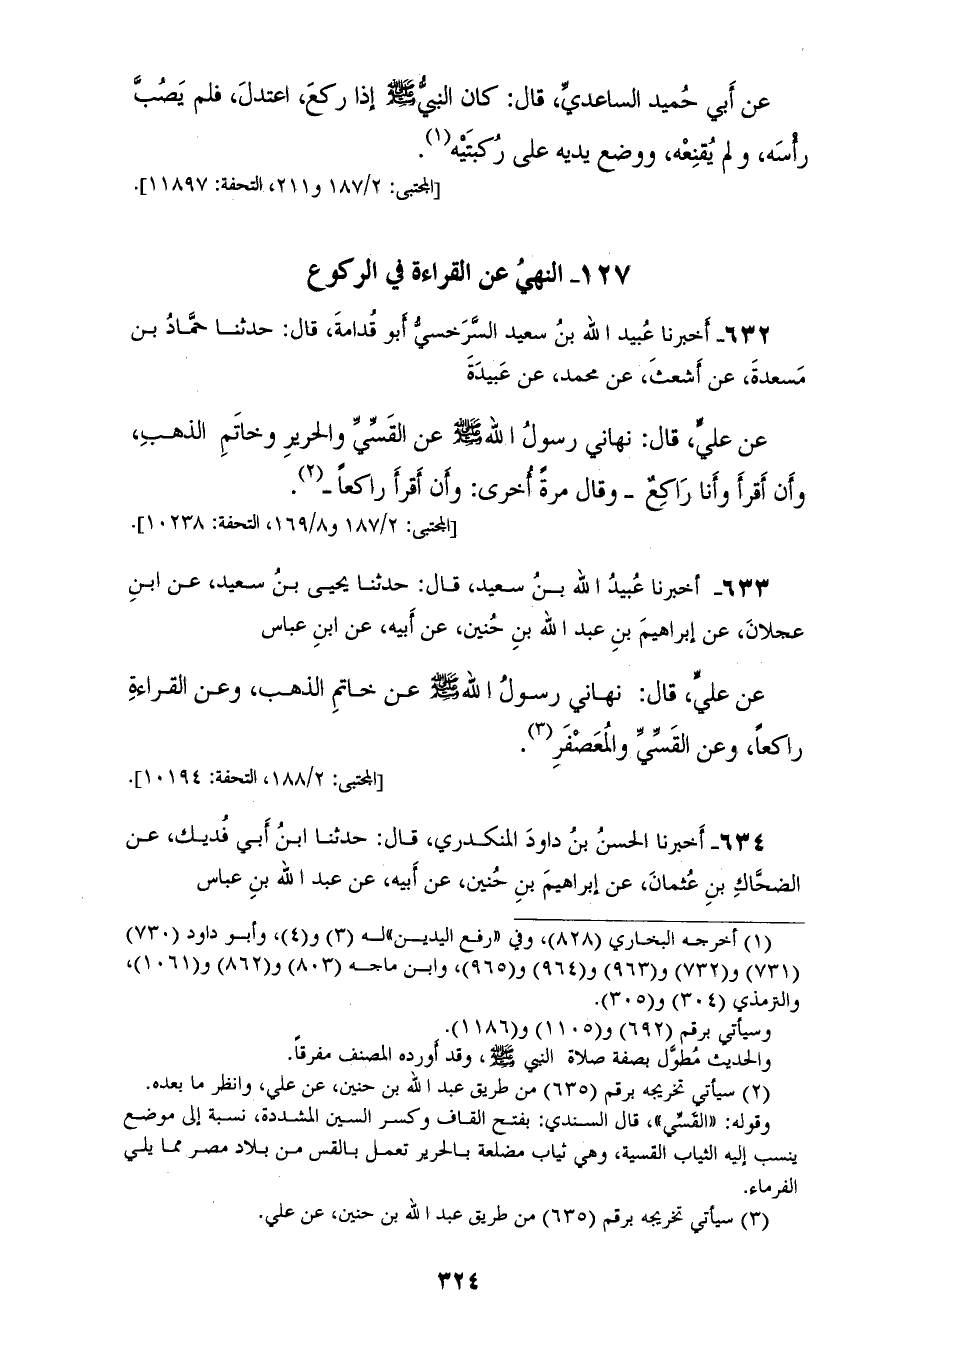 عن أَبي حُميد الساعديِّ، قال: كان النبيُّ ﷺ إذا ركعَ، اعتدلَ، فلم يَصُبَّ
رأْسَه، و لم يُقنِعْه، ووضع يديه على رُكبتَيْه(١).
[المجتبى: ١٨٧/٢ و٢١١، التحفة: ١١٨٩٧].
١٢٧ـ النهيُ عن القراءة في الركوع
٦٣٢ـ أَخبرنا عُبيد الله بنُ سعيد السَّرَخسيُّ أَبو قُدامةَ، قال: حدثنا حمَّادُ بن
مَسعدةَ، عن أَشعثَ، عن محمد، عن عَبيدَةَ
عن عليٍّ، قال: نهاني رسولُ الله ﷺ عن القَسِّيِّ والحريرِ وخاتَمِ الذهبِ،
وأَن أَقرأَ وأَنا رَاكِعٌ ـ وقال مرةً أُخرى: وأَن أَقرأَ راكعاً ـ(٢).
[المجتبى: ١٨٧/٢ و١٦٩/٨، التحفة: ١٠٢٣٨].
٦٣٣ـ أخبرنا عُبيدُ الله بنُ سعيد، قال: حدثنا يحيى بنُ سعيد، عن ابنِ
عجلانَ، عن إبراهيمَ بنِ عبد الله بنِ حُنين، عن أَبيه، عن ابنِ عباس
عن عليٍّ، قال: نهاني رسولُ الله ﷺ عن خاتمِ الذهب، وعن القراءةِ
راكعاً، وعن القَسِّيِّ والمُعَصْفَرِ(٣).
[المجتبى: ١٨٨/٢، التحفة: ١٠١٩٤].
٦٣٤ـ أَخبرنا الحسنُ بنُ داودَ المنكدري، قال: حدثنا ابنُ أَبي فُديك، عن
الضحَّاكِ بنِ عُثمانَ، عن إبراهيمَ بنِ حُنين، عن أَبيه، عن عبد الله بنِ عباس
(١) أخرجه البخاري (٨٢٨)، وفي «رفع اليدين»له (٣) و(٤)، وأبو داود (٧٣٠)
(٧٣١) و(٧٣٢) و(٩٦٣) و(٩٦٤) و(٩٦٥)، وابن ماجه (٨٠٣) و(٨٦٢) و(١٠٦١)،
والترمذي (٣٠٤) و(٣٠٥).
وسيأتي برقم (٦٩٢) و(١١٠٥) و(١١٨٦).
والحديث مُطوَّل بصفة صلاة النبي ﷺ، وقد أَورده المصنف مفرقاً.
(٢) سيأتي تخريجه برقم (٦٣٥) من طريق عبد الله بن حنين، عن علي، وانظر ما بعده.
وقوله: «القَسِّي»، قال السندي: بفتح القاف وكسر السين المشددة، نسبة إلى موضع
ينسب إليه الثياب القسية، وهي ثياب مضلعة بالحرير تعمل بالقس من بلاد مصر مما يلي
الفرماء.
(٣) سيأتي تخريجه برقم (٦٣٥) من طريق عبد الله بن حنين، عن علي.
٣٢٤